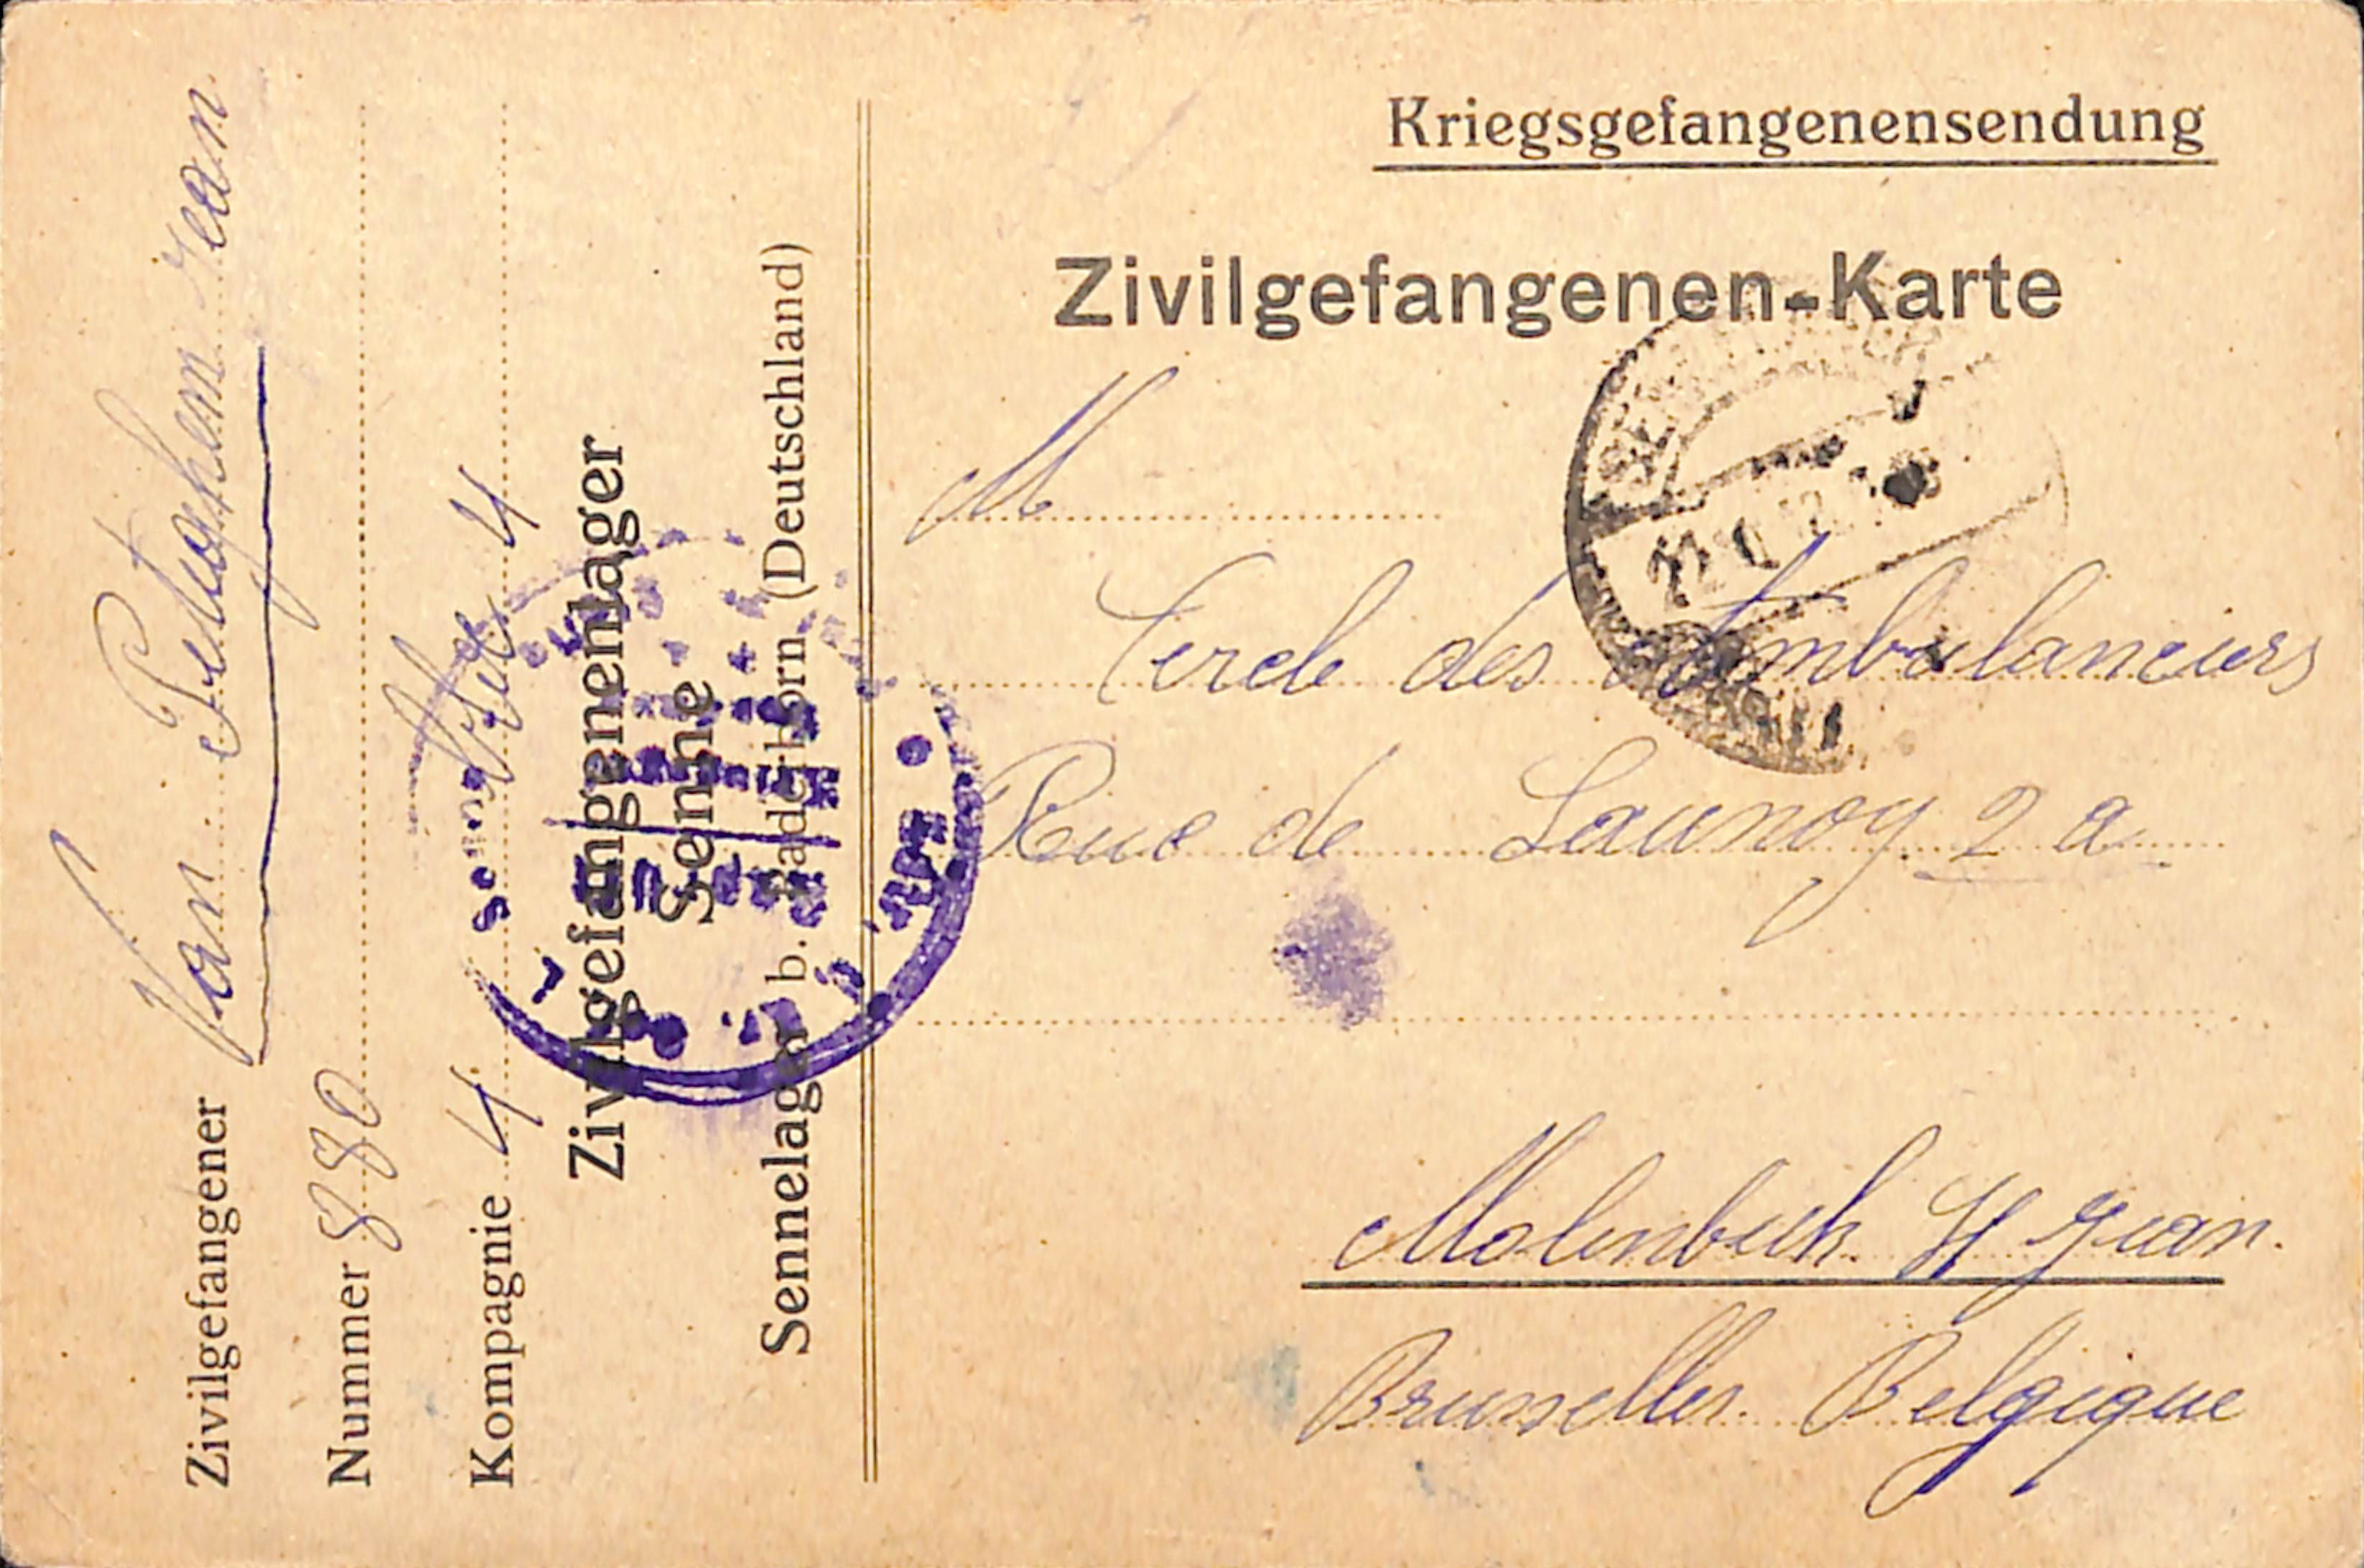 Kriegsgefangenensendung
Zivilgefangenen-Karte
M
Cercle des Ambulanciers
Rue de Launoy 2 a
Molenbeek St Jean.
Bruxelles. Belgique
Zivilgefangener Van Jean
Nummer 880
Kompagnie 4 4
Zivilgefangenenlager
Senne
Sennelager b. Paderborn (Deutschland)